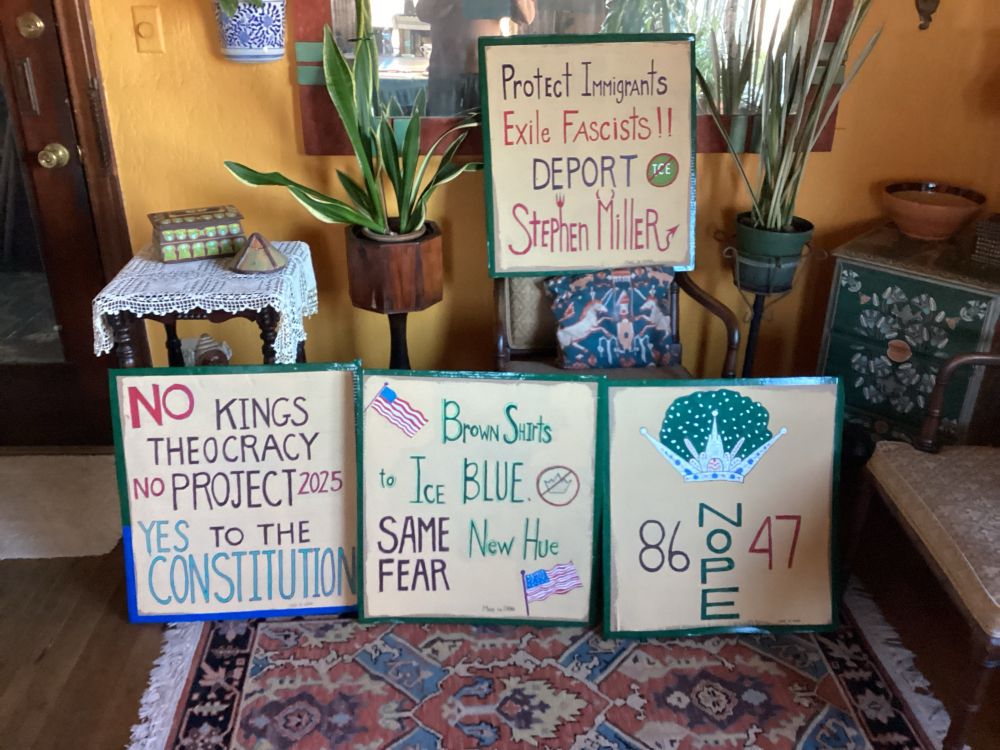 Protect Immigrants
Exile Fascists!!
DEPORT ICE
Stephen Miller
NO KINGS
THEOCRACY
NO PROJECT 2025
YES TO THE
CONSTITUTION
Brown Shirts
to Ice BLUE.
SAME New Hue
FEAR
NOPE
86 47